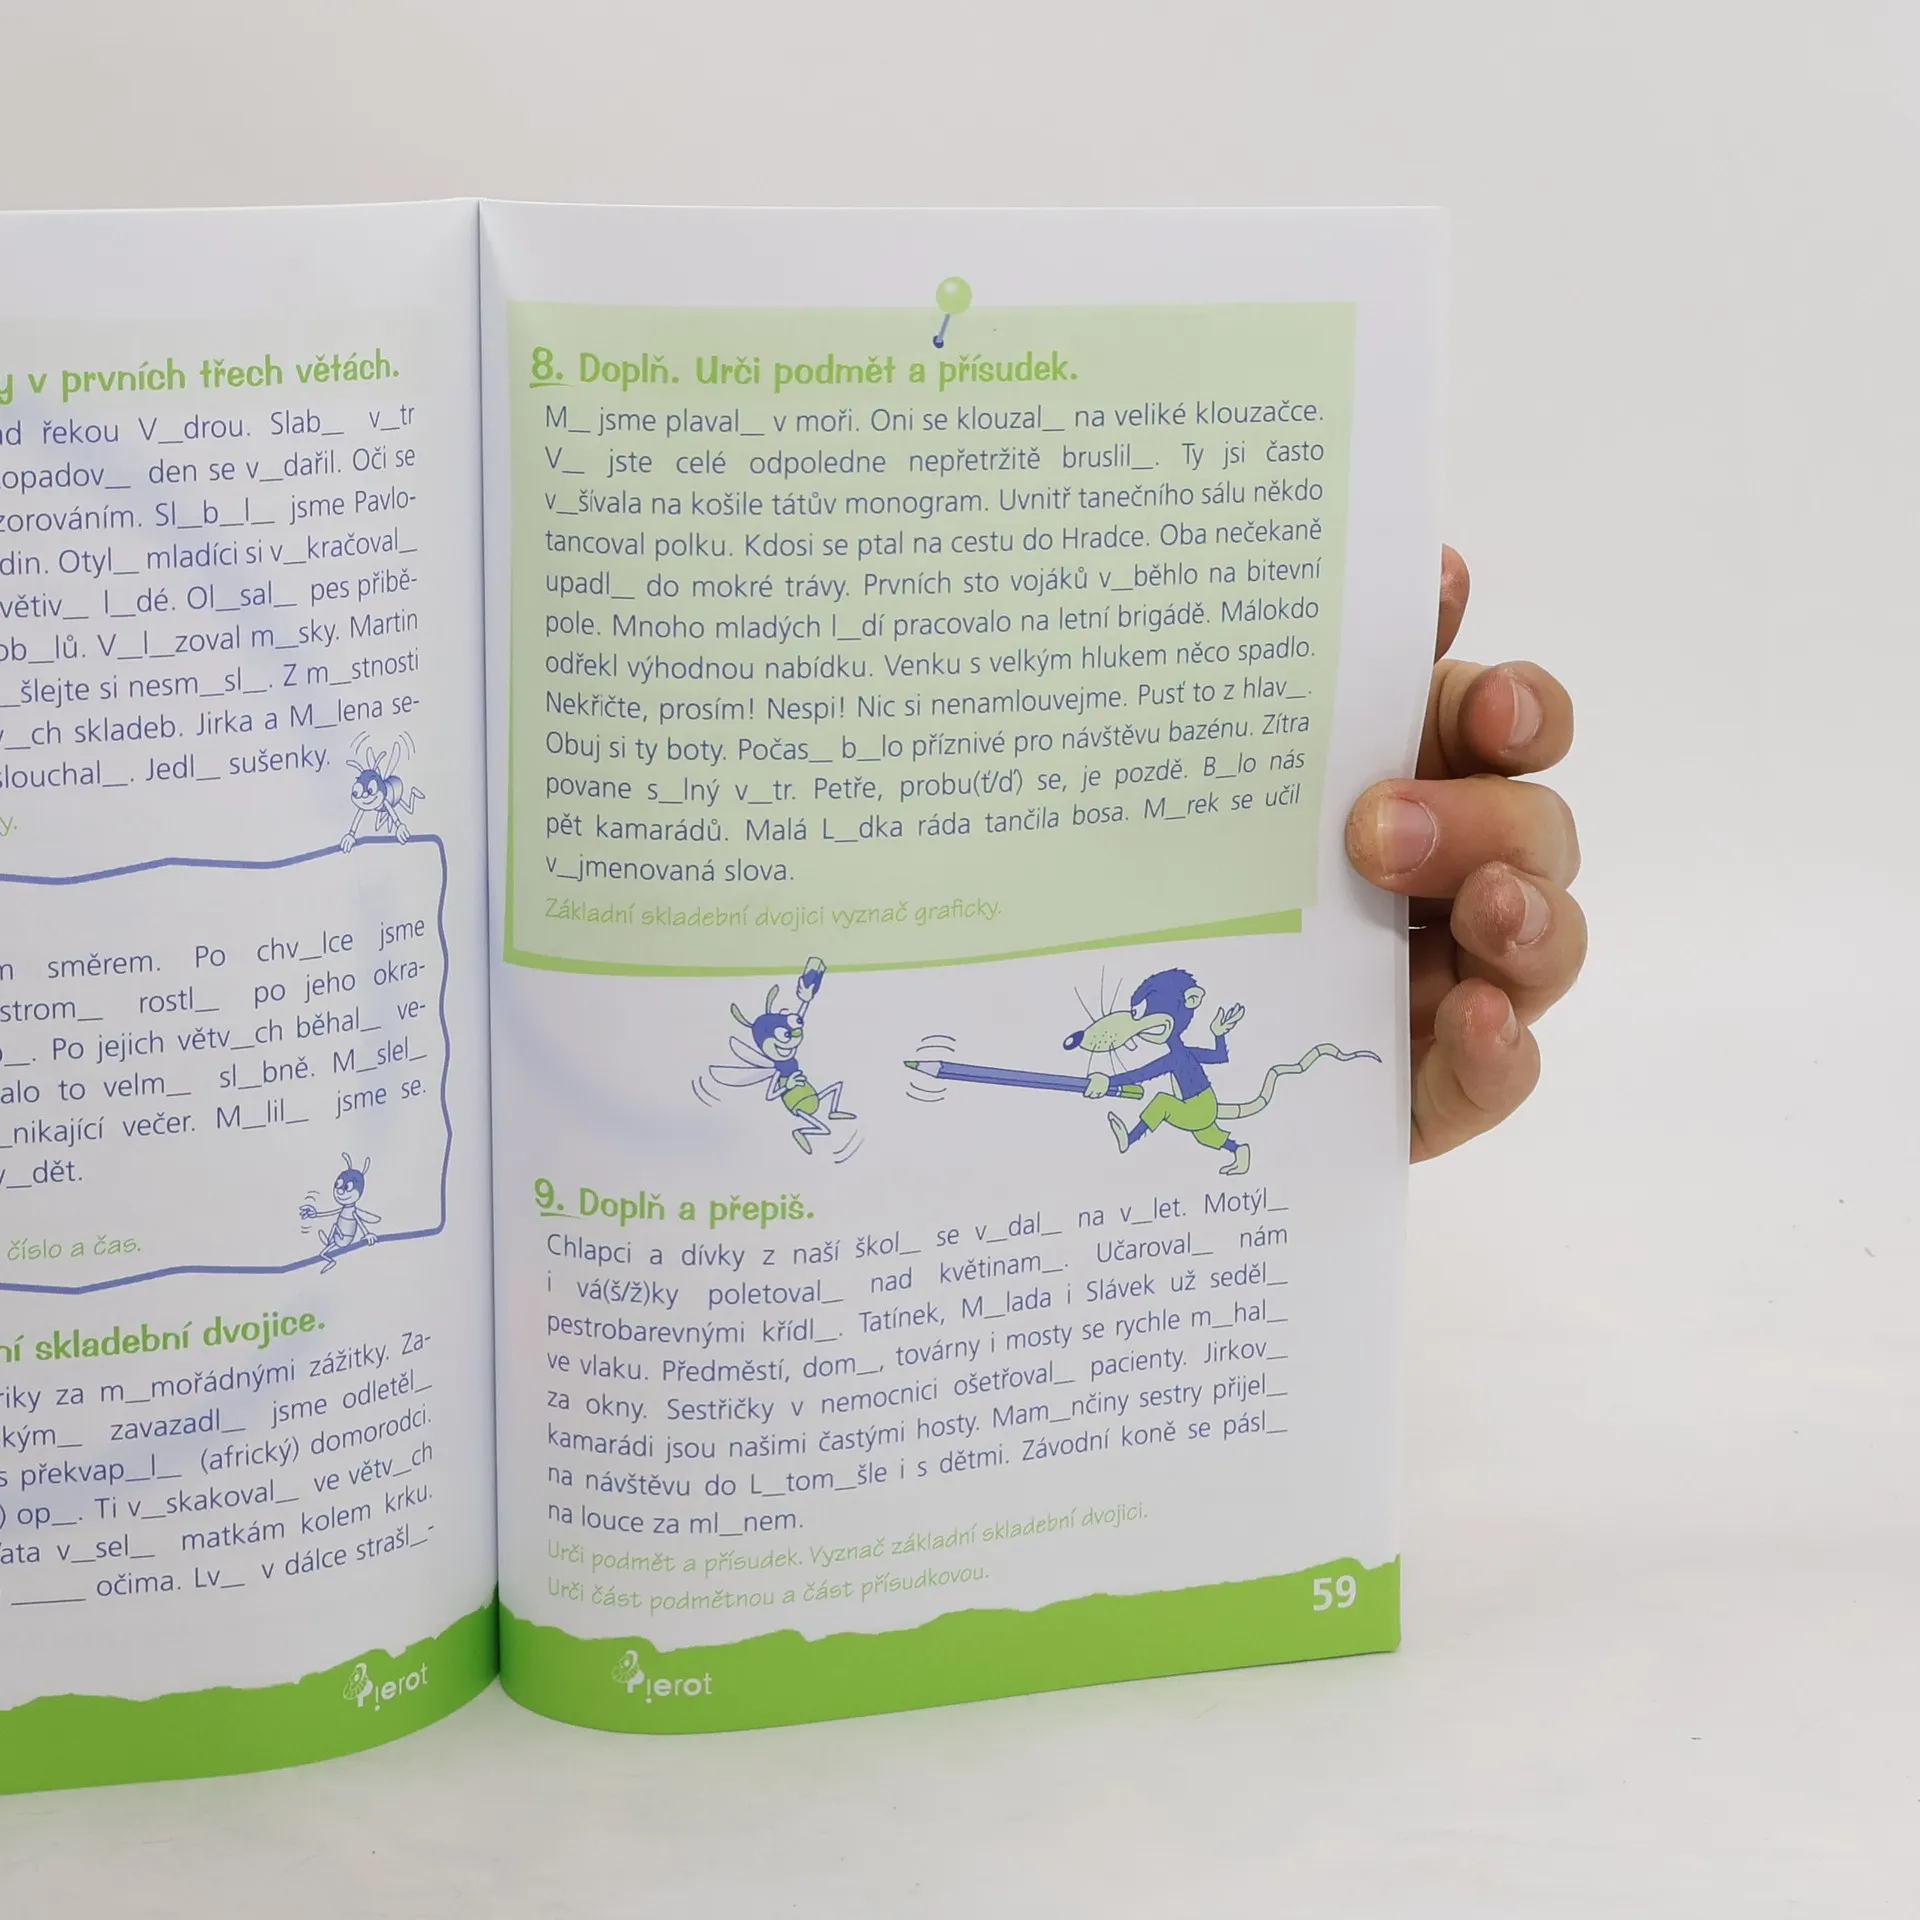 y v prvních třech větách.
ad řekou V__drou. Slab__ v__tr
opadov__ den se v__dařil. Oči se
zorováním. Sl__b__l__ jsme Pavlo-
din. Otyl__ mladíci si v__kračoval__
větiv__ l__dé. Ol__sal__ pes přibě-
ob__lů. V__l__zoval m__sky. Martin
__šlejte si nesm__sl__. Z m__stnosti
v__ch skladeb. Jirka a M__lena se-
slouchal__. Jedl__ sušenky.
y.
m směrem. Po chv__lce jsme
strom__ rostl__ po jeho okra-
__. Po jejich větv__ch běhal__ ve-
alo to velm__ sl__bně. M__slel__
__nikající večer. M__lil__ jsme se.
v__dět.
číslo a čas.
ní skladební dvojice.
riky za m__mořádnými zážitky. Za-
kým__ zavazadl__ jsme odletěl__
s překvap__l__ (africký) domorodci.
) op__. Ti v__skakoval__ ve větv__ch
ata v__sel__ matkám kolem krku.
______ očima. Lv__ v dálce strašl__-
Pierot
8. Doplň. Urči podmět a přísudek.
M__ jsme plaval__ v moři. Oni se klouzal__ na veliké klouzačce.
V__ jste celé odpoledne nepřetržitě bruslil__. Ty jsi často
v__šívala na košile tátův monogram. Uvnitř tanečního sálu někdo
tancoval polku. Kdosi se ptal na cestu do Hradce. Oba nečekaně
upadl__ do mokré trávy. Prvních sto vojáků v__běhlo na bitevní
pole. Mnoho mladých l__dí pracovalo na letní brigádě. Málokdo
odřekl výhodnou nabídku. Venku s velkým hlukem něco spadlo.
Nekřičte, prosím! Nespi! Nic si nenamlouvejme. Pusť to z hlav__.
Obuj si ty boty. Počas__ b__lo příznivé pro návštěvu bazénu. Zítra
povane s__lný v__tr. Petře, probu(ť/ď) se, je pozdě. B__lo nás
pět kamarádů. Malá L__dka ráda tančila bosa. M__rek se učil
v__jmenovaná slova.
Základní skladební dvojici vyznač graficky.
9. Doplň a přepiš.
Chlapci a dívky z naší škol__ se v__dal__ na v__let. Motýl__
i vá(š/ž)ky poletoval__ nad květinam__. Učaroval__ nám
pestrobarevnými křídl__. Tatínek, M__lada i Slávek už seděl__
ve vlaku. Předměstí, dom__, továrny i mosty se rychle m__hal__
za okny. Sestřičky v nemocnici ošetřoval__ pacienty. Jirkov__
kamarádi jsou našimi častými hosty. Mam__nčiny sestry přijel__
na návštěvu do L__tom__šle i s dětmi. Závodní koně se pásl__
na louce za ml__nem.
Urči podmět a přísudek. Vyznač základní skladební dvojici.
Urči část podmětnou a část přísudkovou.
59
Pierot